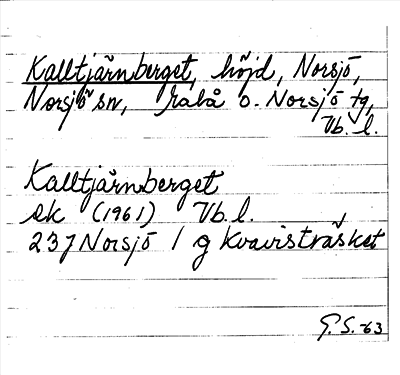 Kalltjärnberget, höjd, Norsjö,
Norsjö sn, Malå o. Norsjö tg,
Vb. l.
Kalltjärnberget
ek (1961) Vb. l.
237 Norsjö 1 g Kvavisträsket
G. S. -63